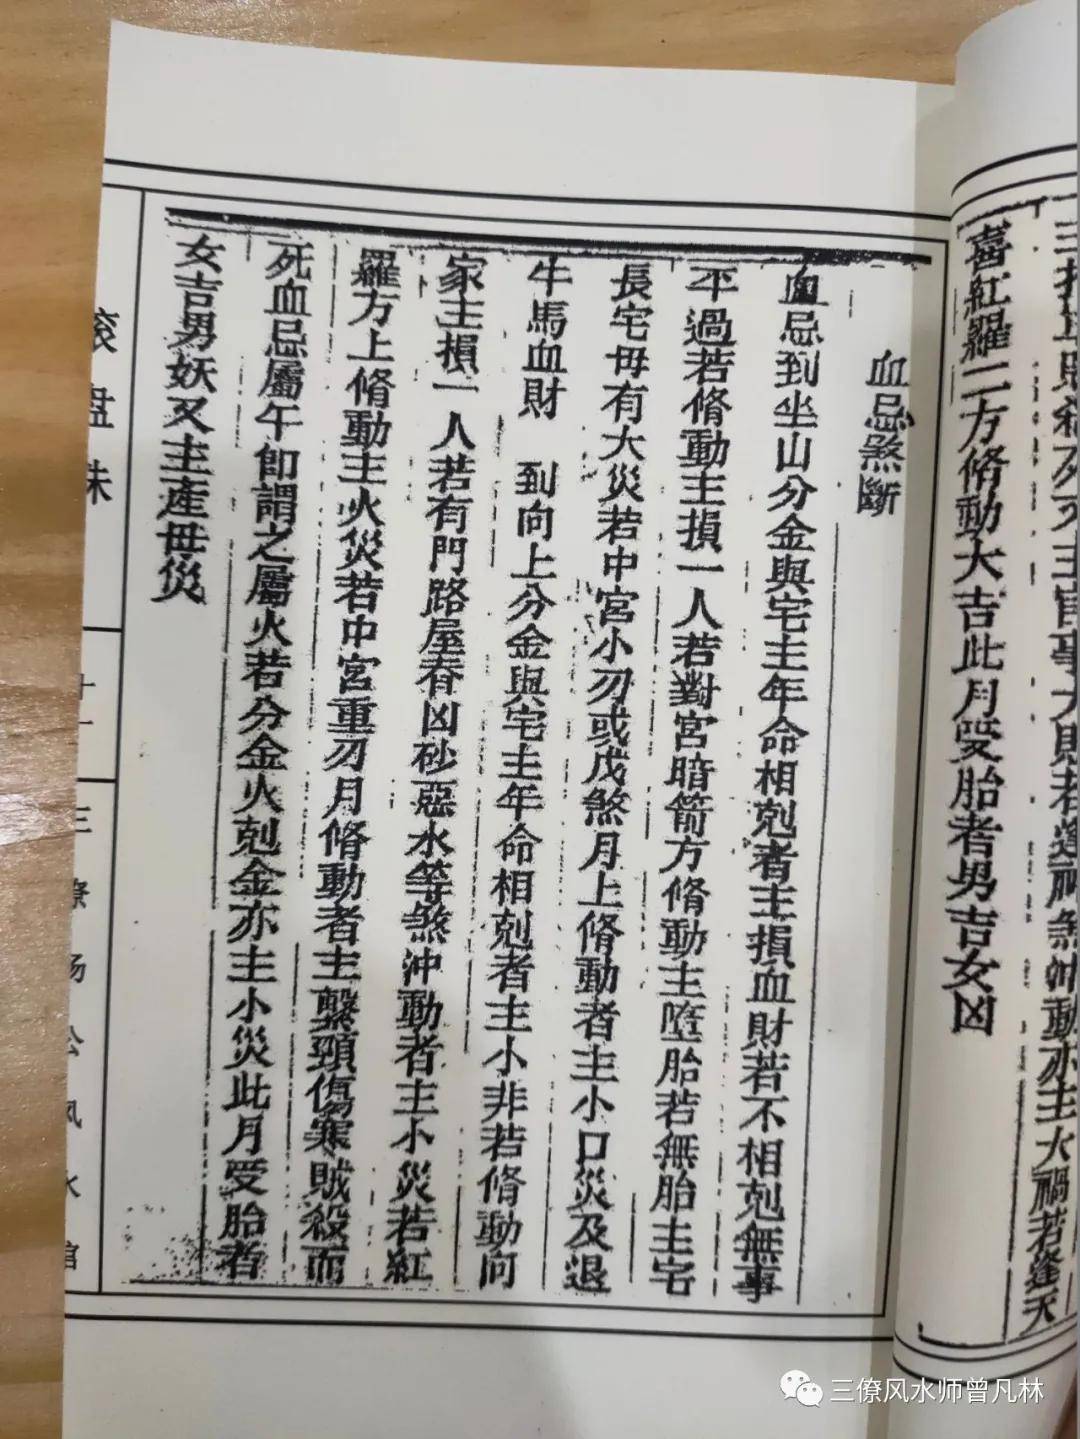 喜紅羅二方脩動大吉此月受胎者男吉女凶
血忌煞斷
血忌到坐山分金與宅主年命相剋者主損血財若不相剋無事
不過若脩動主損一人若對宮暗箭方脩動主墮胎若無胎主宅
長宅母有大災若中宮小刃或戊煞月上脩動者主小口災及退
牛馬血財 到向上分金與宅主年命相剋者主小非若脩動向
家主損一人若有門路屋脊凶砂惡水等煞沖動者主小災若紅
羅方上脩動主火災若中宮重刃月脩動者主繫頸傷寒賊殺而
死血忌屬午卽謂之屬火若分金火剋金亦主小災此月受胎者
女吉男妖又主產母災
滚盘珠
十一
三僚杨公风水
三僚风水师曾凡林